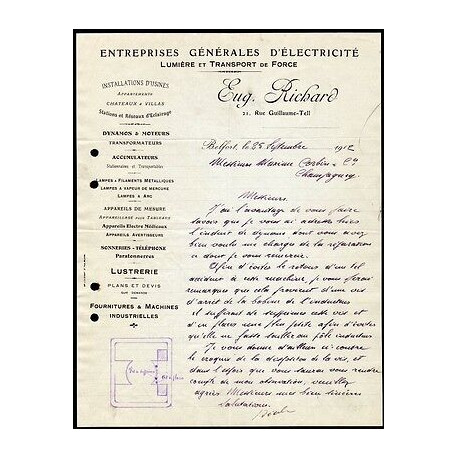 ENTREPRISES GÉNÉRALES D'ÉLECTRICITÉ
LUMIÈRE ET TRANSPORT DE FORCE
INSTALLATIONS D'USINES
APPARTEMENTS
CHATEAUX & VILLAS
Stations et Réseaux d'Eclairage
DYNAMOS & MOTEURS
TRANSFORMATEURS
ACCUMULATEURS
Stationnaires et Transportables
LAMPES A FILAMENTS MÉTALLIQUES
LAMPES A VAPEUR DE MERCURE
LAMPES A ARC
APPAREILS DE MESURE
APPAREILLAGE POUR TABLEAUX
Appareils Electro Médicaux
APPAREILS AVERTISSEURS
SONNERIES - TÉLÉPHONE
Paratonnerres
LUSTRERIE
PLANS ET DEVIS
SUR DEMANDE
FOURNITURES & MACHINES
INDUSTRIELLES
Eug. Richard
21, Rue Guillaume-Tell
Belfort, le 25 Septembre 1912
Messieurs Maxime Corbin & Cie
Champagney
Messieurs.
J'ai l'avantage de vous faire
savoir que je vous ai adressé hier
l'induit de dynamo dont vous avez
bien voulu me charger de la réparation
Afin d'éviter le retour d'un tel
accident à cette machine, je vous ferai
remarquer que cela provient d'une vis
d'arrêt de la bobine de l'inducteur
il suffirait de supprimer cette vis et
d'en placer une plus petite afin d'éviter
qu'elle ne fasse saillie au pôle inducteur
Je vous donne d'ailleurs ci-contre
le croquis de la disposition de la vis, et
dans l'espoir que vous saurez vous rendre
compte de mon observation, veuillez
agréer Messieurs mes bien sincères
salutations.